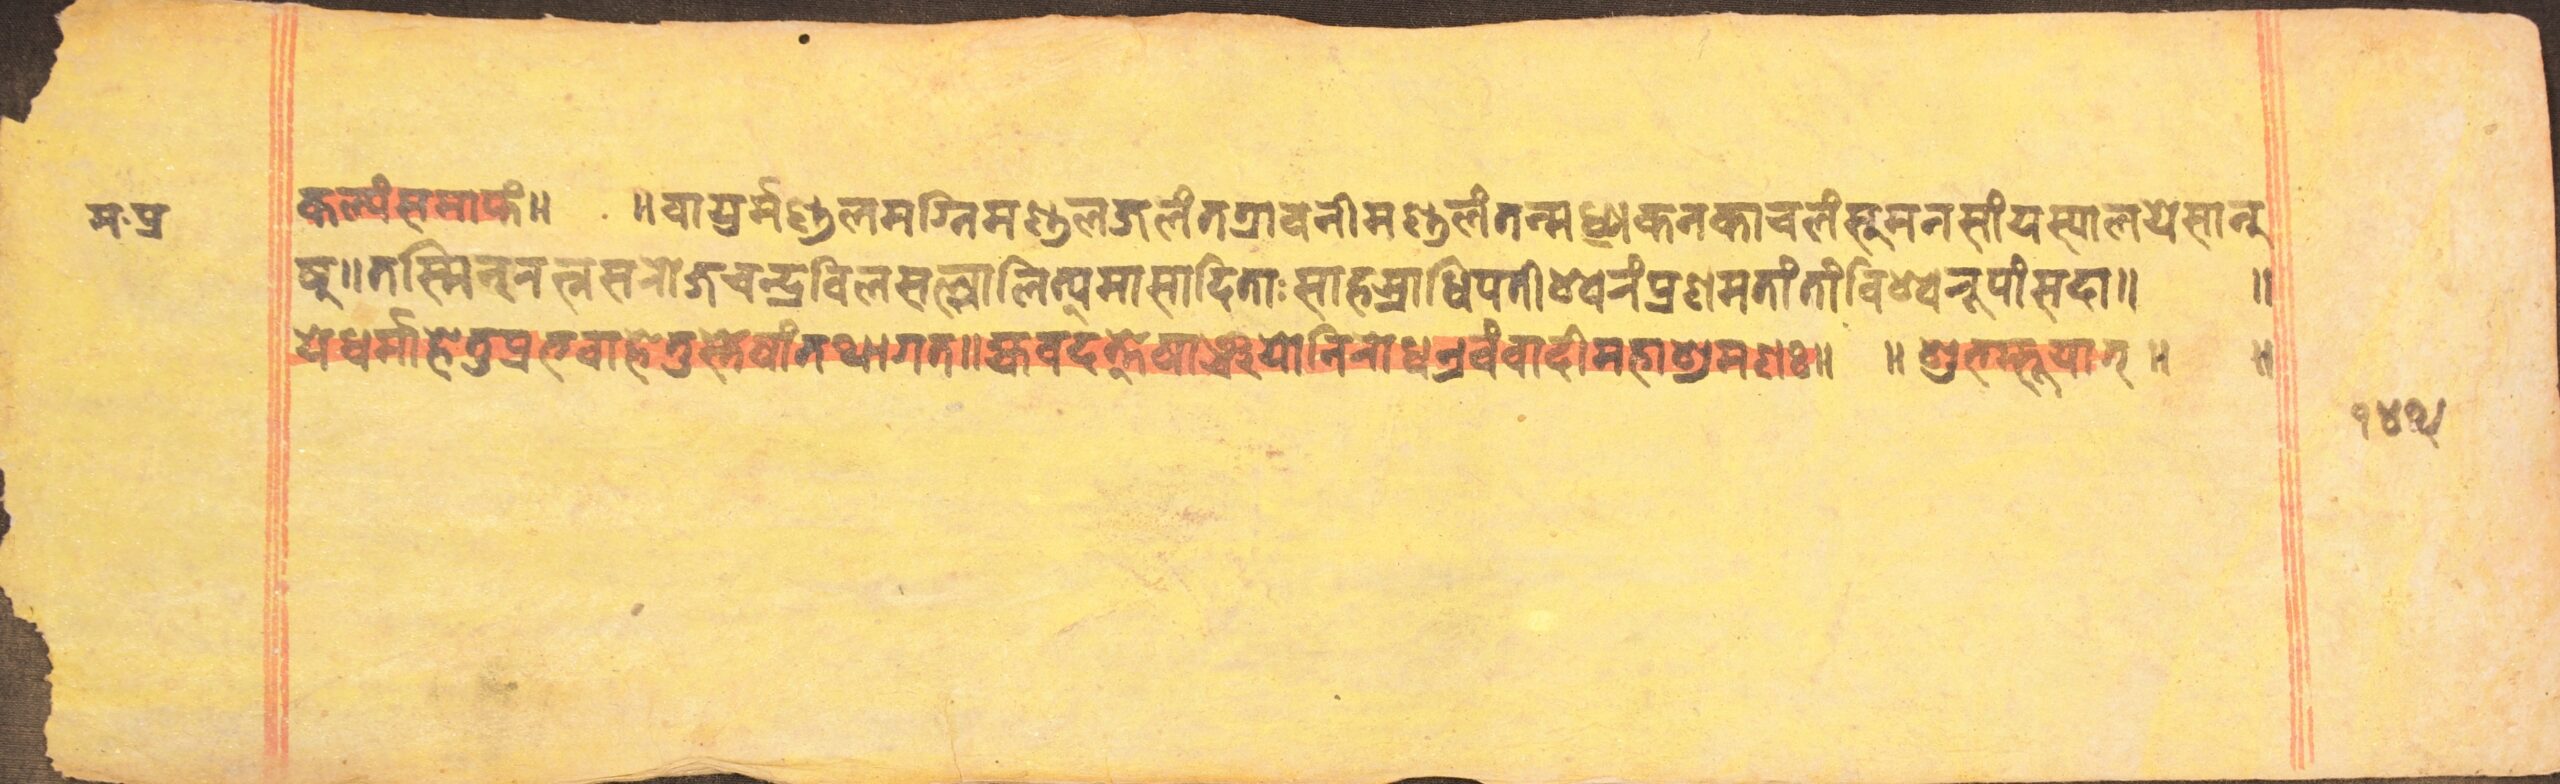 म॰ प्र
कल्पं समाप्तं॥ ॥वायुर्मण्डलमग्निमण्डलजलं तत्रावनीमण्डलं तन्मध्या कनकाचलं सुमनसां यस्यालये सानु
षु॥तस्मिन् रत्नसरोजचन्द्रविलस मासादिताः साहस्राधिपतीश्वरं प्रणमतां तां विश्वरूपां सदा॥ ॥
ये धर्मा हेतुप्रभवा हेतुस्तेषां तथागत॥ ह्यवदत्तेषाञ्च यो निरोध एवं वादी महाश्रमणः॥ ॥शुभम्भूयात्॥ ॥